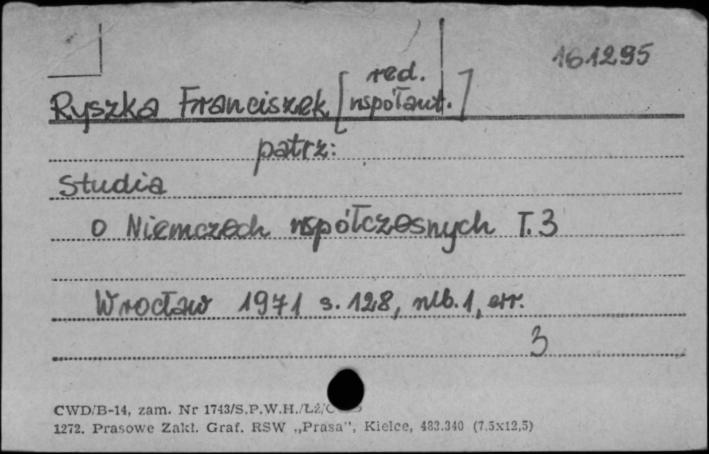 161295
Ryszka Franciszek [red. współaut.]
patrz:
Studia
o Niemczech współczesnych T.3
Wrocław 1971 s. 128, nlb. 1, err.
3
CWD/B-14, zam. Nr 1743/S.P.W.H./Łź/
1272. Prasowe Zakł. Graf. RSW „Prasa", Kielce, 483.340 (7,5x12,5)